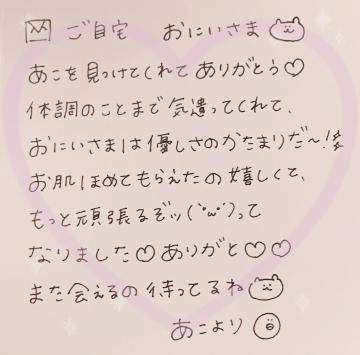 ご自宅 おにいさま
あこを見つけてくれてありがとう♡
体調のことまで気遣ってくれて、
おにいさまは優しさのかたまりだ〜!
お肌ほめてもらえたの嬉しくて、
もっと頑張るぞッ(`･ω･´)って
なりました♡ありがと♡♡
また会えるの待ってるね
あこより